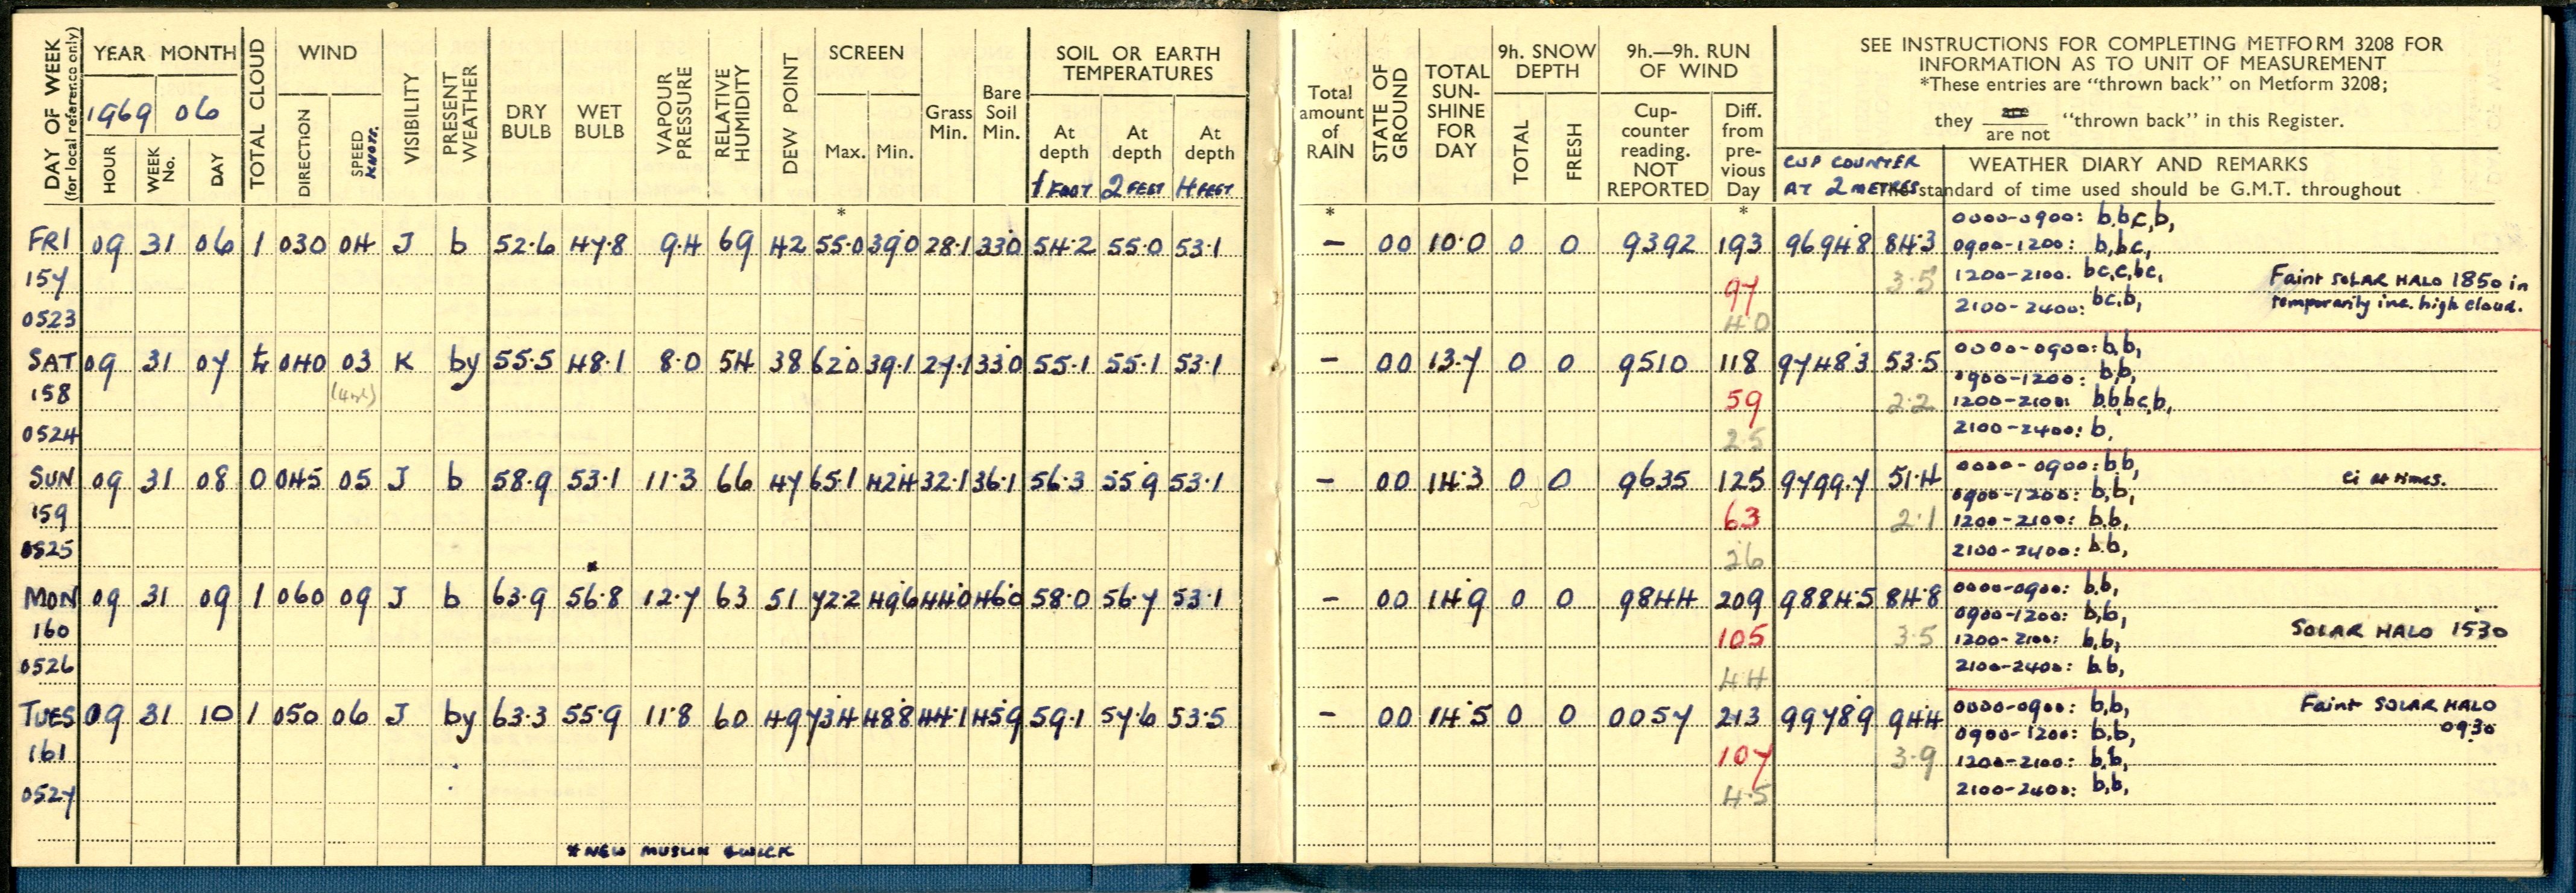 DAY OF WEEK (for local reference only) YEAR MONTH TOTAL CLOUD WIND VISIBILITY PRESENT WEATHER DRY BULB WET BULB VAPOUR PRESSURE RELATIVE HUMIDITY DEW POINT SCREEN Grass Min. Bare Soil Min. SOIL OR EARTH TEMPERATURES
1969 06
HOUR WEEK No. DAY DIRECTION SPEED KNOTS. Max. Min. At depth 1 FOOT At depth 2 FEET At depth 4 FEET
*
FRI 09 31 06 1 030 04 J b 52.6 47.8 9.4 69 42 55.0 39.0 28.1 33.0 54.2 55.0 53.1
157
0523
SAT 09 31 07 040 03 K by 55.5 48.1 8.0 54 38 62.0 39.1 27.1 33.0 55.1 55.1 53.1
158
0524
SUN 09 31 08 0 045 05 J b 58.9 53.1 11.3 66 47 65.1 42.4 32.1 36.1 56.3 55.9 53.1
159
0525
*
MON 09 31 09 1 060 09 J b 63.9 56.8 12.7 63 51 72.2 49.6 44.0 46.0 58.0 56.7 53.1
160
0526
TUES 09 31 10 1 050 06 J by 63.3 55.9 11.8 60 49 73.4 48.8 44.1 45.9 59.1 57.6 53.5
161
0527
* NEW MUSLIN & WICK
Total amount of RAIN STATE OF GROUND TOTAL SUN-SHINE FOR DAY 9h. SNOW DEPTH 9h.—9h. RUN OF WIND
TOTAL FRESH Cup-counter reading. NOT REPORTED Diff. from pre-vious Day
SEE INSTRUCTIONS FOR COMPLETING METFORM 3208 FOR
INFORMATION AS TO UNIT OF MEASUREMENT
*These entries are "thrown back" on Metform 3208;
they are "thrown back" in this Register.
are not
CUP COUNTER
AT 2 METRES
WEATHER DIARY AND REMARKS
The standard of time used should be G.M.T. throughout
* *
0000-0900: b,bc,b,
— 00 10.0 0 0 9392 193 9694.8 84.3 0900-1200: b,bc,
97 3.5 1200-2100: bc,c,bc, Faint SOLAR HALO 1850 in
4.0 2100-2400: bc,b, temporarily inc. high cloud.
0000-0900: b,b,
— 00 13.7 0 0 9510 118 9748.3 53.5 0900-1200: b,b,
59 2.2 1200-2100: b,b,bc,b,
2.5 2100-2400: b,
0000-0900: b,b,
— 00 14.3 0 0 9635 125 9799.7 51.4 0900-1200: b,b, Ci at times.
63 2.1 1200-2100: b,b,
2.6 2100-2400: b,b,
0000-0900: b,b,
— 00 14.9 0 0 9844 209 9884.5 84.8 0900-1200: b,b,
105 3.5 1200-2100: b,b, SOLAR HALO 1530
4.4 2100-2400: b,b,
— 00 14.5 0 0 0057 213 9978.9 94.4 0000-0900: b,b, Faint SOLAR HALO
0900-1200: b,b, 0930
107 3.9 1200-2100: b,b,
4.5 2100-2400: b,b,